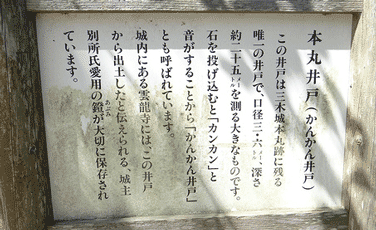 本丸井戸(かんかん井戸)
この井戸は三木城本丸跡に残る
唯一の井戸で、口径三・六㍍、深さ
約二十五㍍を測る大きなものです。
石を投げ込むと「カンカン」と
音がすることから「かんかん井戸」
とも呼ばれています。
城内にある雲龍寺には、この井戸
から出土したと伝えられる、城主
別所氏愛用の鐙(あぶみ)が大切に保存され
ています。